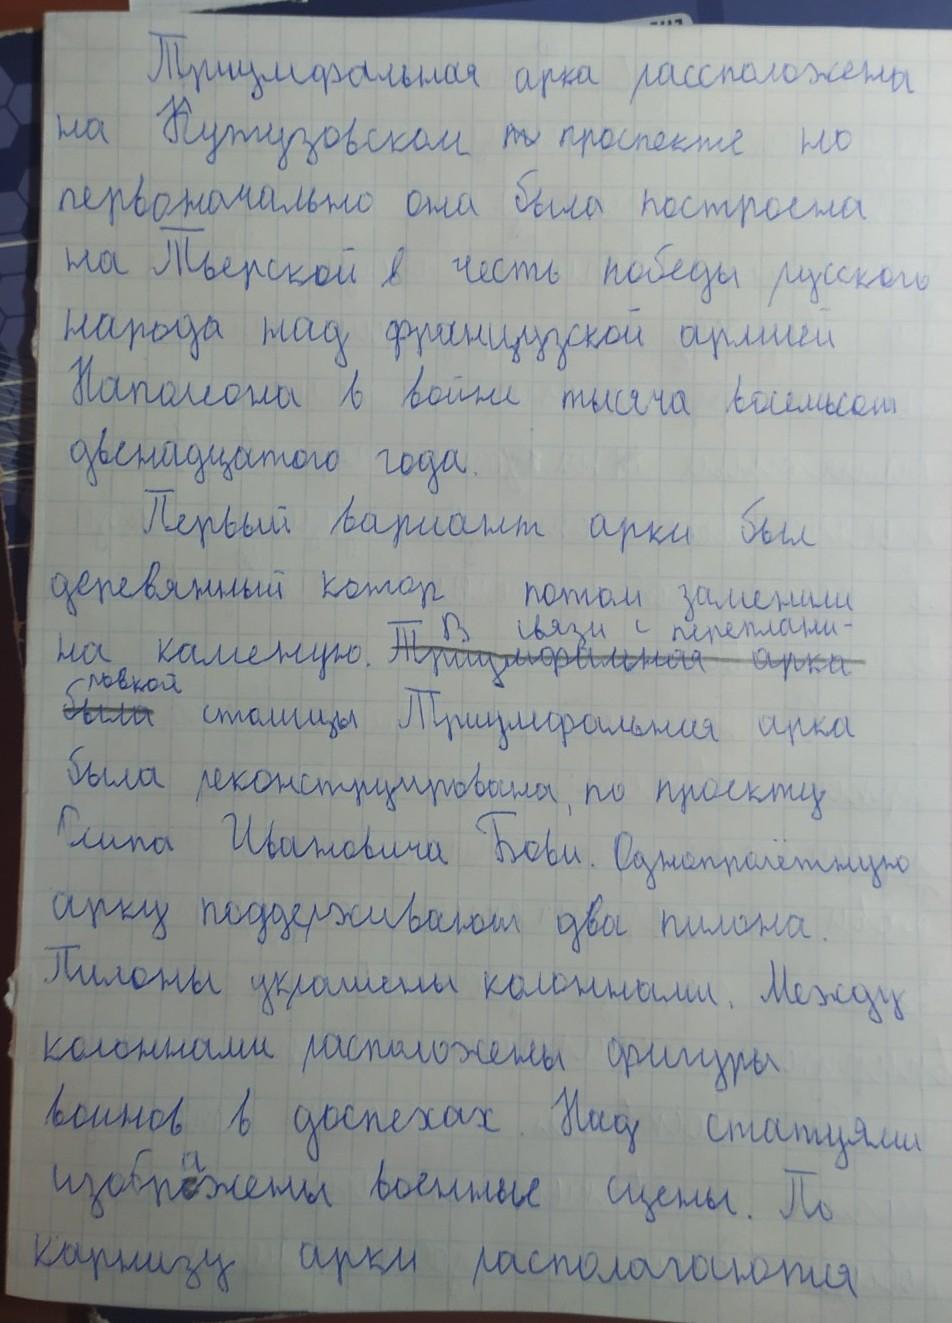 Триумфальная арка рассположены
на Кутузовском проспекте но
первоначально она была построена
на Тверской в честь победы русского
народа над французской армией
Наполеона в войне тысяча восемьсот
двенадцатого года.
Первый вариант арки был
деревянный котор потом заменили
В связи с переплани-
на каменую. Триумфальная арка
ровкой
была столицы Триумфальная арка
была реконструирована, по проекту
Сипа Ивановича Бови. Однопролётную
арку поддерживают два пилона.
Пилоны украшены колоннами. Между
колоннами расположены фигуры
воинов в доспехах. Над статуями
изображены военные сцены. По
карнизу арки располагаются